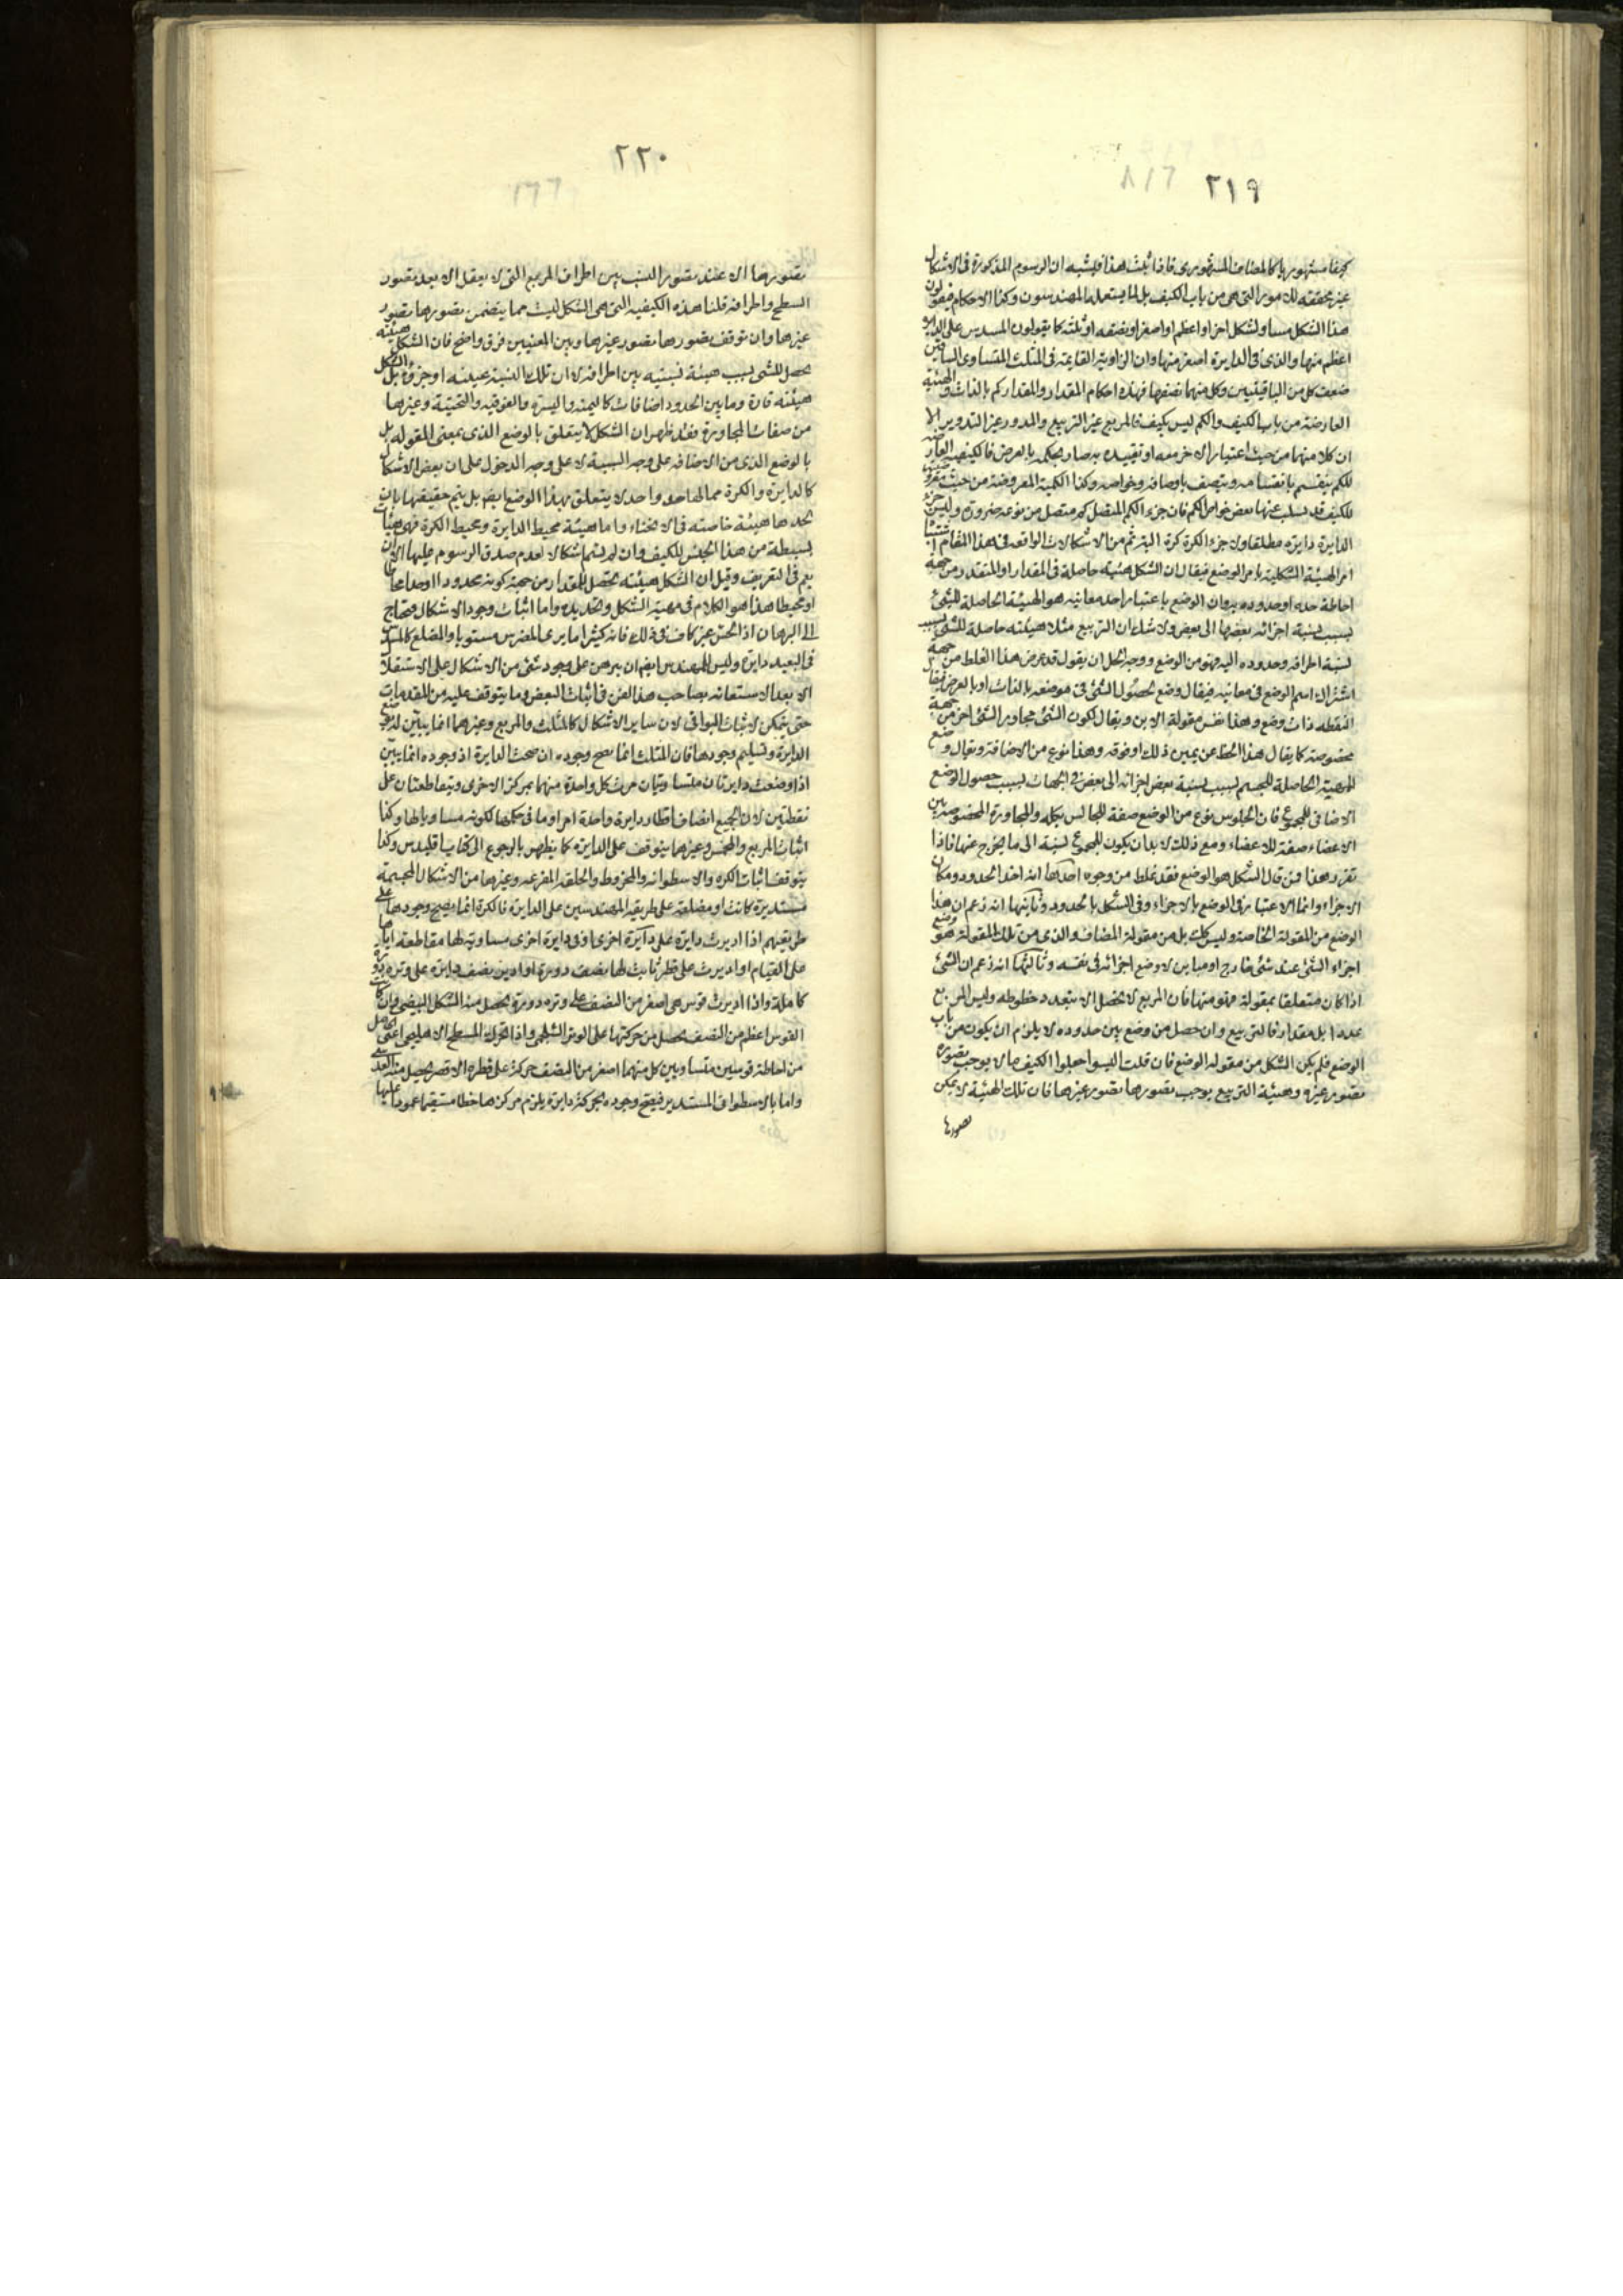 ٢١٩
كيفا مشهوريا كالمضاف المشهورى فاذا ثبت هذا فيشبه ان الرسوم المذكورة فى الاشكال
غير محققة للامور التى هى من باب الكيف بل لما يستعمله المهندسون وكذا الاحكام فيقولون
هذا الشكل مساو لشكل اخر او اعظم او اصغر او نصفه او ثلثه كما يقولون المسدس على الدايرة
اعظم منها والذى فى الدايرة اصغر منها وان الزاوية القايمة فى المثلث المتساوى الساقين
ضعف كل من الباقيتين وكل منهما نصفها فهذه احكام المقدار والمقدار كم بالذات والهيئة
العارضة من باب الكيف والكم ليس بكيف فالمربع غير التربيع والمدور غير التدوير الا
ان كلا منهما من حيث اعتبار الاخر معه او تقييده به صار بحكمه بالعرض فالكيفية العارضة
للكم ينقسم بانقسامه ويتصف باوصافه وخواصه وكذا الكمية المعروضة من حيث معروضيتها
للكيف قد يسلب عنها بعض خواص الكم فان جزء الكم المتصل كم متصل من نوعه ضرورة وليس جزء
الدايرة دايرة مطلقا ولا جزء الكرة كرة البتة ثم من الاشكالات الواقعة فى هذا المقام اشتباه
امر الهيئة الشكلية بامر الوضع فيقال ان الشكل هيئة حاصلة فى المقدار او المتقدر من جهة
احاطة حد او حدوده به وان الوضع باعتبار احد معانيه هو الهيئة الحاصلة للشئ
بسبب نسبة اجزائه بعضها الى بعض ولا شك ان التربيع مثلا هيئة حاصلة للشئ بسبب
نسبة اطرافه وحدوده اليه فهو من الوضع ووجه الحل ان يقول قد عرض هذا الغلط من جهة
اشتراك اسم الوضع فى معانيه فيقال وضع لحصول الشئ فى موضعه بالذات او بالعرض فيقال
النقطة ذات وضع وهذا نفس مقولة الاين ويقال لكون الشئ مجاور الشئ اخر من جهة
مخصوصة كما يقال هذا الخط عن يمين ذلك او فوقه وهذا نوع من الاضافة ويقال وضع
للهيئة الحاصلة للجسم بسبب نسبة بعض اجزائه الى بعض فى الجهات بسبب حصول الوضع
الاضافى للمجموع فان الجلوس نوع من الوضع صفة للجالس بكله والمجاورة المخصوصة بين
الاعضاء صفة للاعضاء ومع ذلك لابد ان يكون للمجموع نسبة الى ما يخرج عنها فاذا
تقرر هذا فمن قال الشكل هو الوضع فقد غلط من وجوه احدها انه اخذ الحدود ومكان
الاجزاء وانما الاعتبار فى الوضع بالاجزاء وفى الشكل بالحدود وثانيها انه زعم ان هذا
الوضع من المقولة الخاصة وليس كك بل من مقولة المضاف والذى من تلك المقولة هو وضع
اجزاء الشئ عند شئ خارج او مباين لا وضع اجزائه فى نفسه وثالثها انه زعم ان الشئ
اذا كان متعلقا بمقولة فهو منها فان المربع لا يحصل الا بتعدد خطوطه وليس المربع
عددا بل مقدار فالتربيع وان حصل من وضع بين حدوده لا يلزم ان يكون من باب
الوضع فلم يكن الشكل من مقولة الوضع فان قلت اليسوا جعلوا الكيف ما لا يوجب تصوره
تصور غيره وهيئة التربيع يوجب تصورها تصور غيرها فان تلك الهيئة لا يمكن
تصورها
٢٢٠
تصورها الا عند تصور النسب بين اطراف المربع التى لا يعقل الا بعد تصور
السطح واطرافه قلنا هذه الكيفية التى هى الشكل ليست مما يتضمن تصورها تصور
غيرها وان توقف تصورها تصور غيرها وبين المعنيين فرق واضح فان الشكل هيئة
تحصل للشئ بسبب هيئة نسبية بين اطرافه لا ان تلك النسبة عينه او جزؤه بل الشكل
هيئته قارة وما بين الحدود اضافات كاليمنة واليسرة والفوقية والتحتية وغيرها
من صفات المجاورة فقد ظهر ان الشكل لا يتعلق بالوضع الذى بمعنى المقولة بل
بالوضع الذى من الاضافة على وجه السببية لا على وجه الدخول على ان بعض الاشكال
كالدايرة والكرة مما لها حد واحد لا يتعلق بهذا الوضع ايض بل يتم حقيقتها بان
لحدها هيئة خاصة فى الانحناء واما هيئة محيط الدايرة ومحيط الكرة فهى هيئات
بسيطة من هذا الجنس للكيف وان لم يتسم اشكالا لعدم صدق الرسوم عليها الا ان
يعم فى التعريف وقيل ان الشكل هيئته تحصل للمقدار من جهة كونه محدودا او حدا محاطا
او محيطا هذا هو الكلام فى مهية الشكل وتحديده واما اثبات وجود الاشكال فمحتاج
الى البرهان اذ الحس غير كاف فى ذلك فانه كثيرا ما يرى المضرس مستويا والمضلع كالمسدس
فى البعيد دايرة وليس للمهندس ايض ان يبرهن على وجود شئ من الاشكال على الاستقلال
الا بعد الاستعانة بصاحب هذا الفن فى اثبات البعض وما يتوقف عليه من المقدمات
حتى يتمكن لاثبات البواقى لان ساير الاشكال كالمثلث والمربع وغيرهما انما يبين لهم بوضع
الدايرة وتسليم وجودها فان المثلث انما يصح وجوده ان صحت الدايرة اذ وجوده انما يبين
اذا وضعت دايرتان متساويتان مرت كل واحدة منهما بمركز الاخرى ويتقاطعتان على
نقطتين لان الجميع انصاف اقطار دايرة واحدة امر او ما فى حكمها لكونه مساويا لها وكذا
اثبات المربع والمخمس وغيرهما يتوقف على الدايرة كما يظهر بالرجوع الى كتاب اقليدس وكذا
يتوقف اثبات الكرة والاسطوانة والمخروط والحلقة المفرغة وغيرها من الاشكال المجسمة
مستديرة كانت او مضلعة على طريقة المهندسين على الدايرة فالكرة انما يصح وجودها على
طريقتهم اذا اديرت دايرة على دايرة اخرى او فى دايرة اخرى مساوية لها مقاطعة اياها
على القيام او اديرت على قطر ثابت لها نصف دورة او ادير نصف دايرة على وتره دورة
كاملة واذا اديرت قوس هى اصغر من النصف على وتره دورة يحصل منه الشكل البيضى وان كانت
القوس اعظم من النصف يحصل من حركتها على الوتر الشلجمى واذا تحرك المسطح الاهليلجى اعنى الحاصل
من احاطة قوسين متساويين كل منهما اصغر من النصف حركة على قطره الاقصر يحصل منه العدسى
واما بالاسطوانى المستدير فيصح وجوده بحركة دايرة يلزم مركزها خطا مستقيما عمودا عليها